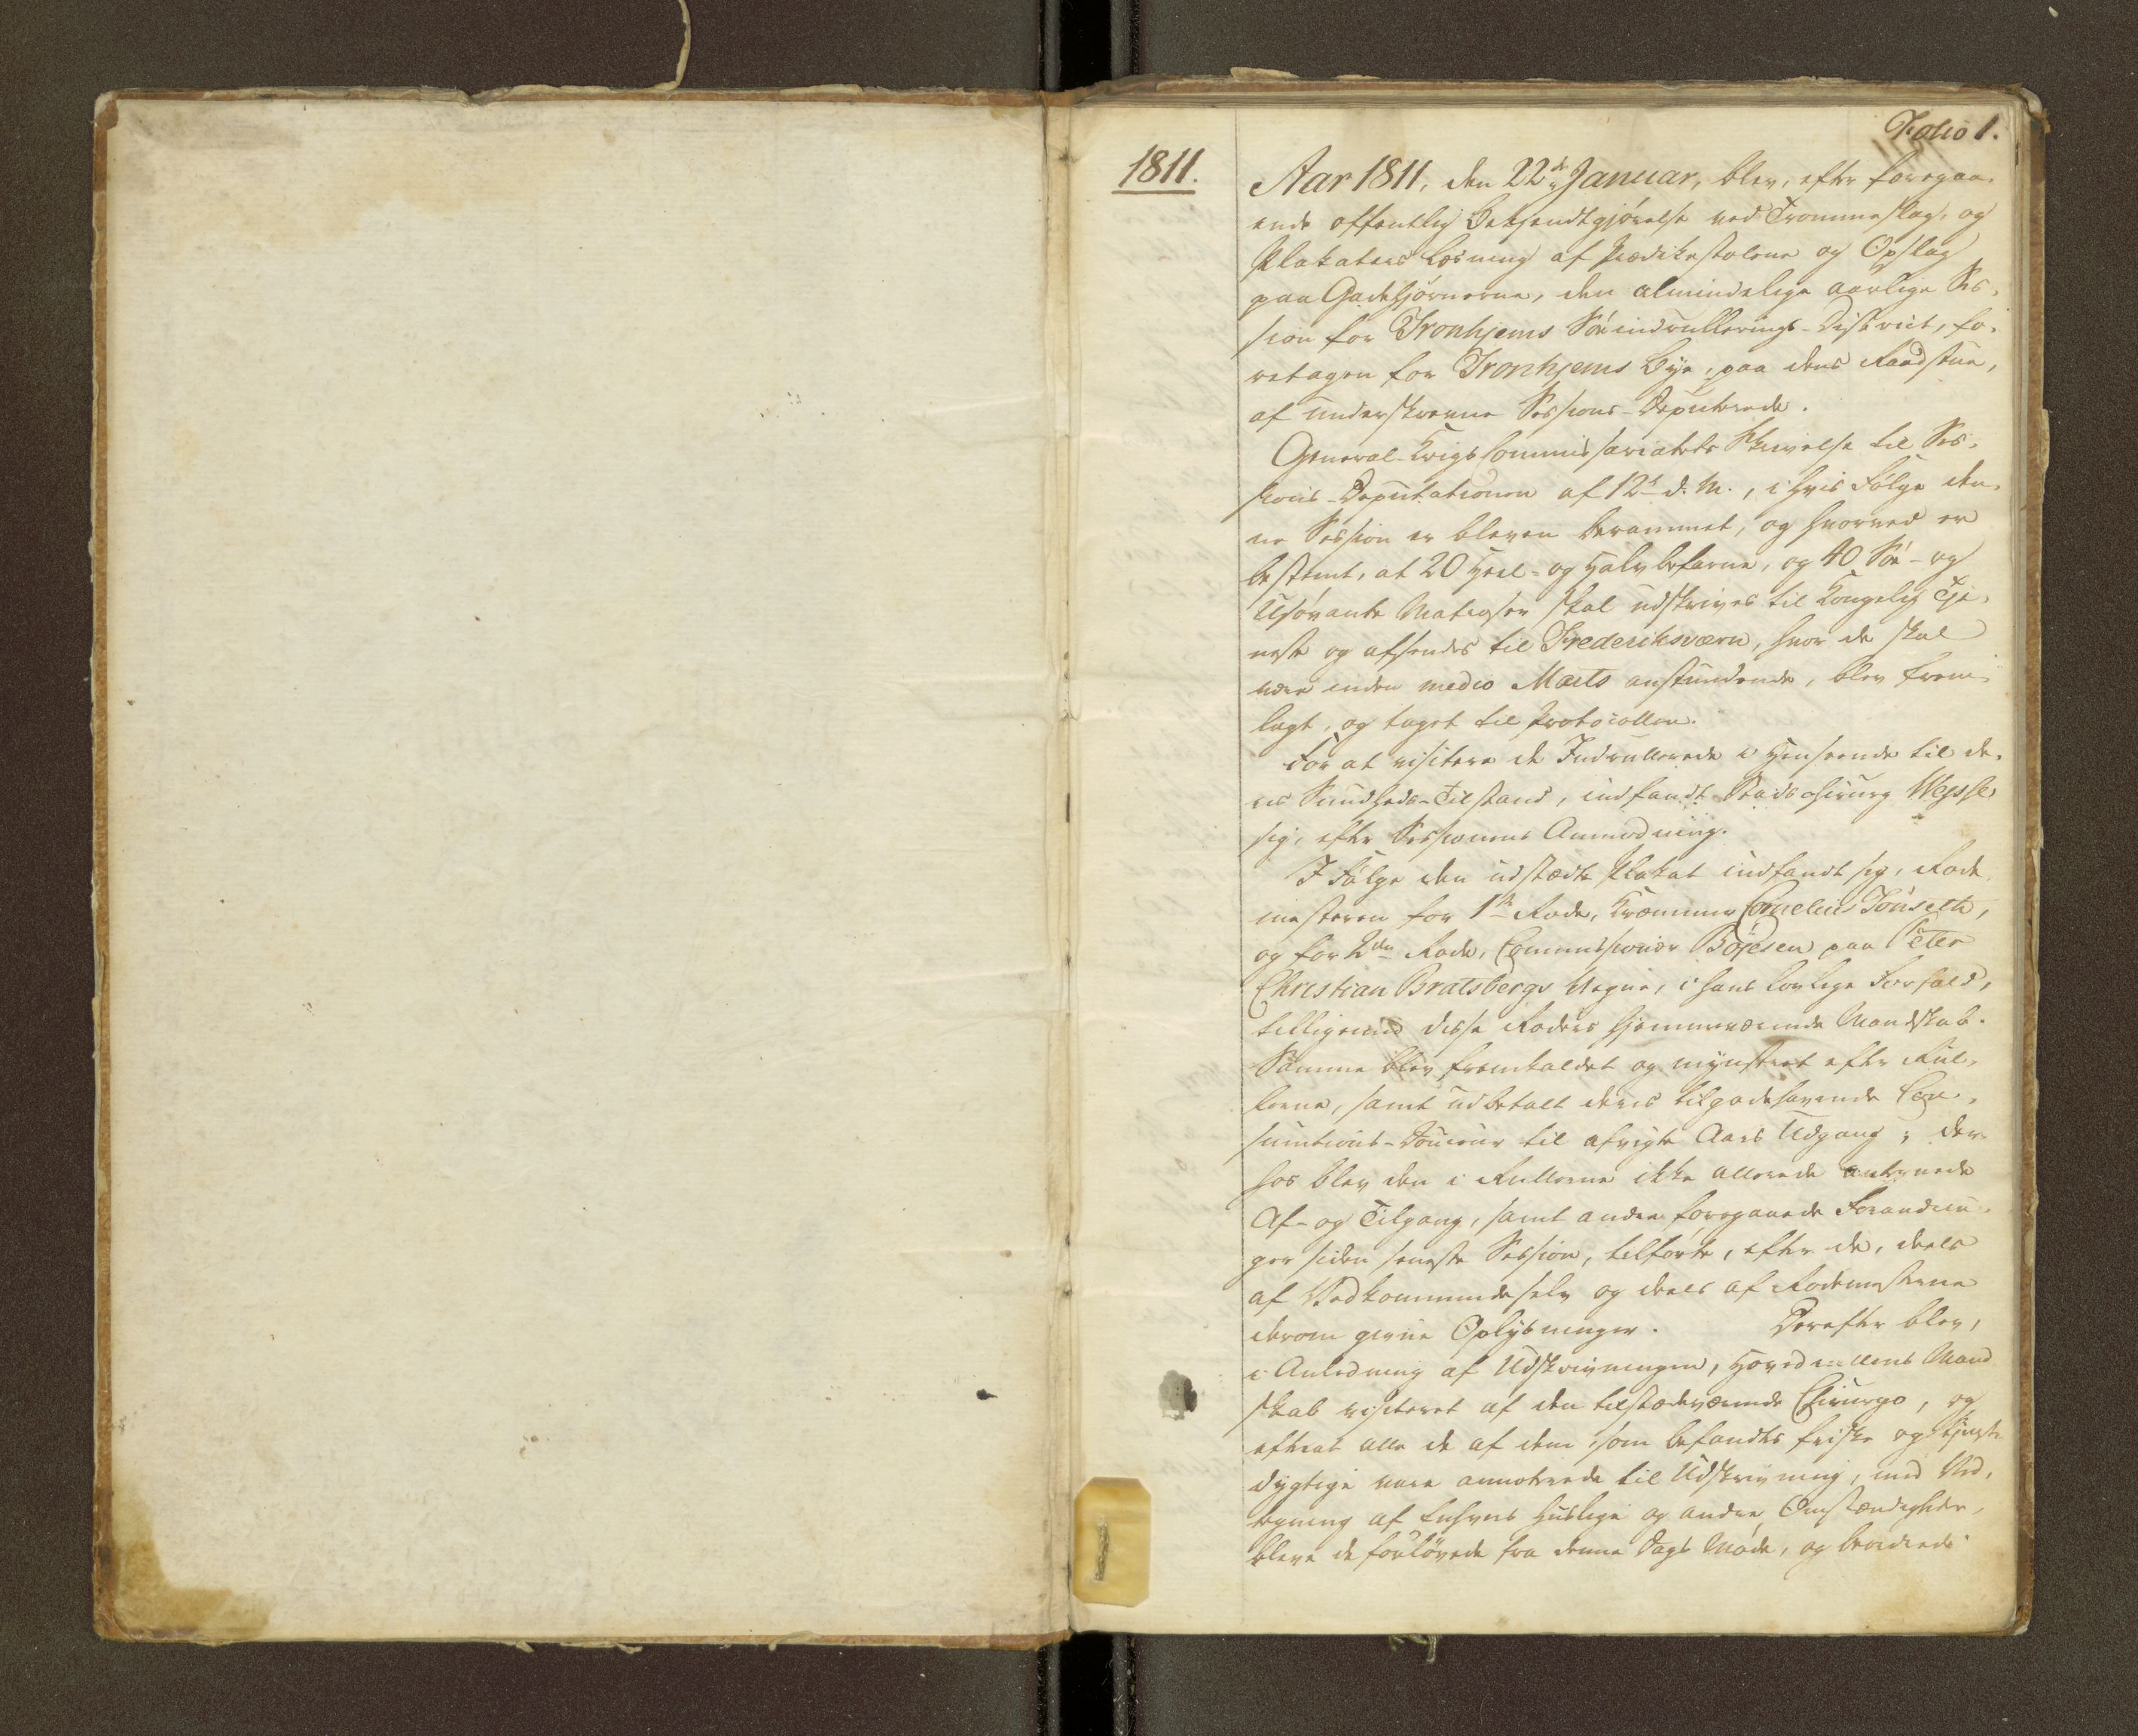 Folio 1.
1811.
Aar 1811, den 22de Januar, blev, efter foregaa-
ende offentlig Bekjendtgjørelse ved Trommeslag, og
Plakaters Læsning af Prædikestolene og Opslag
paa Gadehjørnerne, den almindelige aarlige Ses-
sion for Tronhjems Søeindrullerings-District, fo-
retagen for Tronhjems Bye, paa dens Raadstue,
af underskrevne Sessions-Deputerede.
General-KrigsCommissariatets Skrivelse til Ses-
sions-Deputationen af 12te d. M., i hvis Følge den-
ne Session er bleven berammet, og hvorved er
bestemt, at 20 Heel- og Halvbefarne, og 40 Søe- og
Usøvante Matroser skal udskrives til Kongelig Tje-
neste og afsendes til Frederiksværn, hvor de skal
være inden medio Marts anstundende, blev frem-
lagt, og taget til Protocollen.
For at visitere de Indrullerede i Henseende til de-
res Sundheds-Tilstand, indfandt Stadschirurg Weysse
sig, efter Sessionens Anmodning.
I Følge den udstædte Plakat indfandt sig, Rode-
mesteren for 1te Rode, Kræmmer Cornelius Tønseth,
og for 2den Rode, Commissionær Böjesen paa Peter
Christian Bratsbergs Vegne, i hans lovlige Forfald,
tilligemed disse Roders hjemmeværende Mandskab.
Samme blev fremkaldet og mynstret efter Rul-
lerne, samt udbetalt deres tilgodehavende Con-
sumtions-Douceur til afvigte Aars Udgang; der-
hos blev den i Rullerne ikke allerede antegnede
Af- og Tilgang, samt andre foregaaede Forandrin-
ger siden seneste Session, tilførte, efter de, deels
af Vedkommende selv og deels af Rodemesterne
derom givne Oplysninger. Derefter blev,
i Anledning af Udskrivningen, Hovedrullens Mand-
skab visiteret af den tilstædeværende Chirurgo, og
efterat alle de af dem, som befandtes friske og tjenst-
dygtige vare annoterede til Udskrivning, med An-
tegning af Enhvers huslige og andre Omstændigheder,
bleve de forløvede fra denne Dags Møde, og beordrede